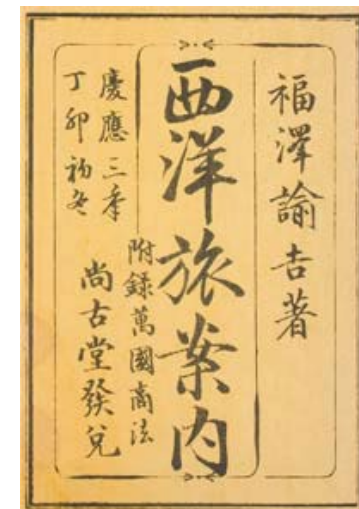 福澤諭吉著
西洋旅案内
附録萬國商法
慶應三季
丁卯初冬
尚古堂發兌